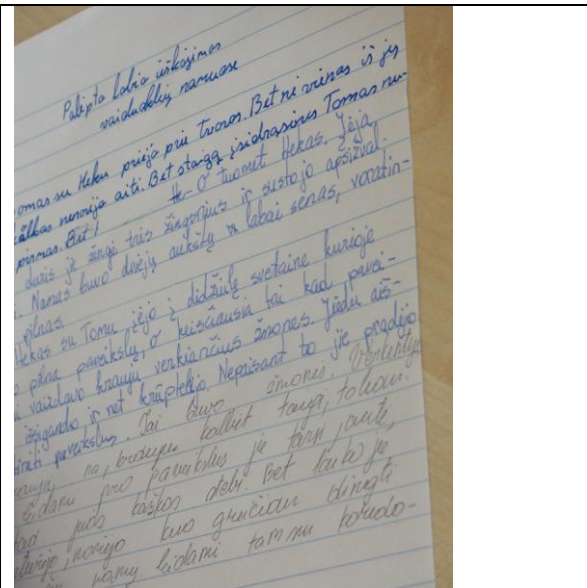 Paslėpto lobio ieškojimas
vaiduoklių namuose
omas su Heku priėjo prie tvoros. Bet ni vienas iš jų
kas norėjo eiti. Bet staiga įsidrąsinęs Tomas nu-
pirmas. Bet
He- O tuomet Hekas. Įėję
duris jie žingė tris žingsnius ir sustojo apsižval.
Namas buvo dviejų aukštų ir labai senas, voratin-
pilnas.
Hekas su Tomu įėjo į didžiulę svetaine kurioje
o pilna paveikslų, o keisčiausia tai kad pavei-
vaizdavo krauju verkiančius žmones. Jiedu
išsigando ir net krūptelėjo. Nepaisant to jie pradėjo
paveikslus. Tai buvo žmonės, verkentys
na, kalbėt
Eidami pro paveikslus jie tarsi jautė,
juos kažkas stebi. Bet
norėjo kuo greičiau dingti
namų. Eidami tam nu korido-